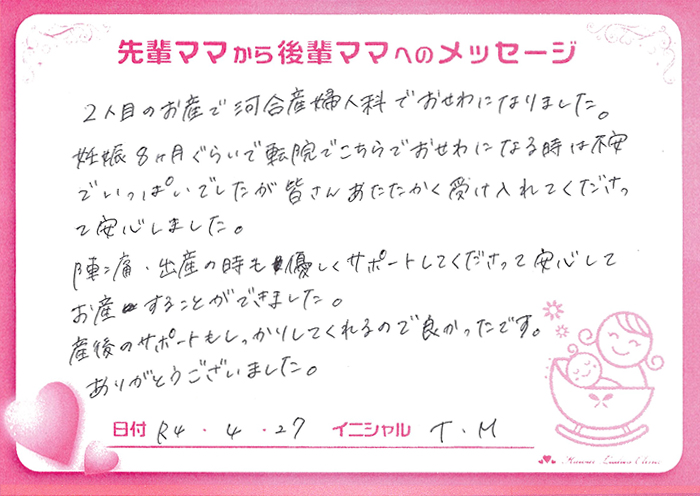 先輩ママから後輩ママへのメッセージ
2人目のお産で河合産婦人科でおせわになりました。
妊娠8ヶ月ぐらいで転院でこちらでおせわになる時は不安
でいっぱいでしたが皆さんあたたかく受け入れてくださっ
て安心しました。
陣痛・出産の時も優しくサポートしてくださって安心して
お産することができました。
産後のサポートもしっかりしてくれるので良かったです。
ありがとうございました。
日付 R4・4・27 イニシャル T.M